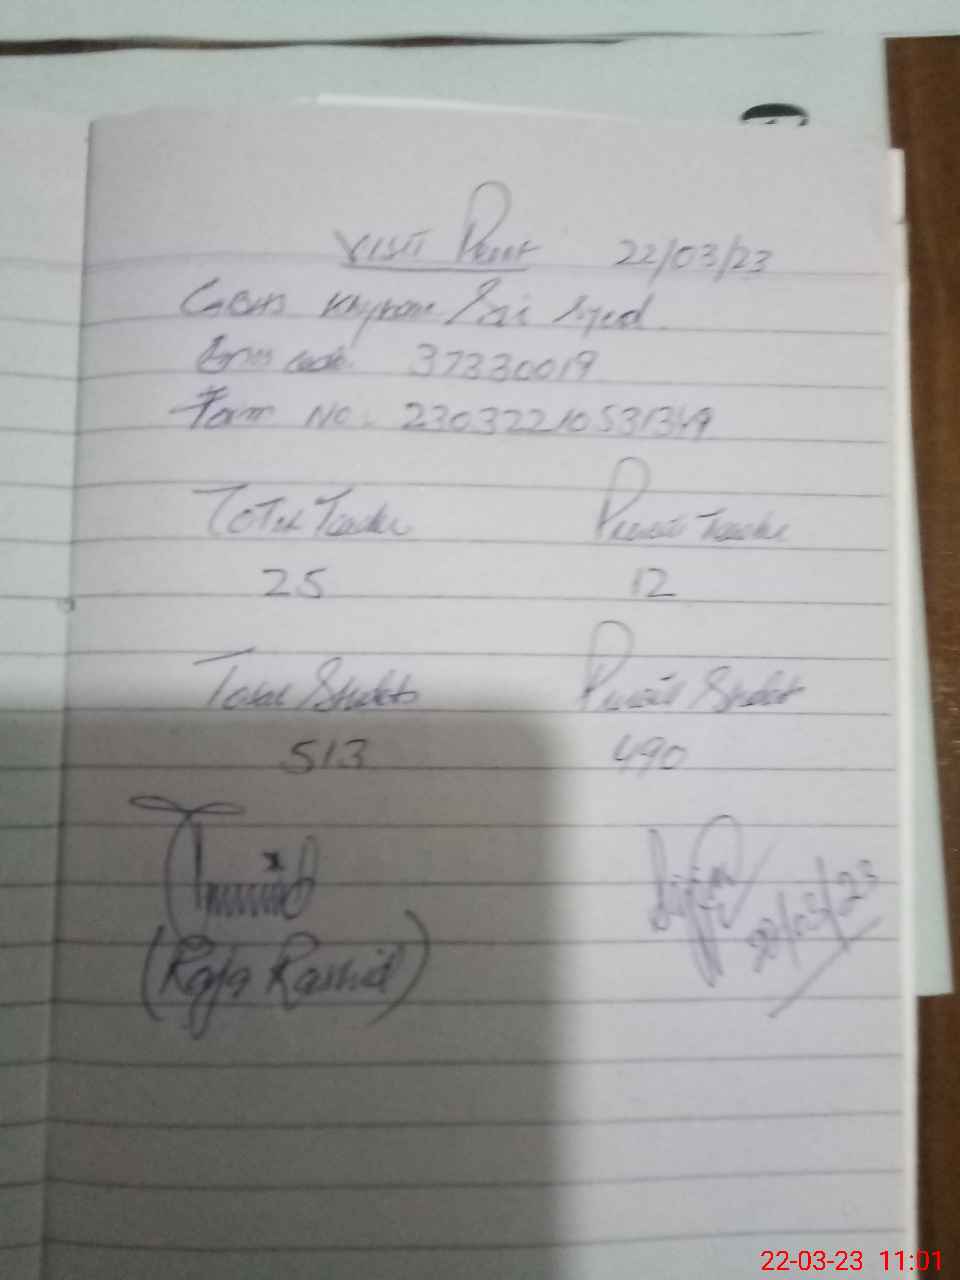 VISIT Point 22/03/23
Syed
code: 37330019
Form No: 23032210531349
Total Teacher Present Teacher
25 12
Total Students Present Student
513 490
(Raja Rashid)
22/03/23
22-03-23 11:01